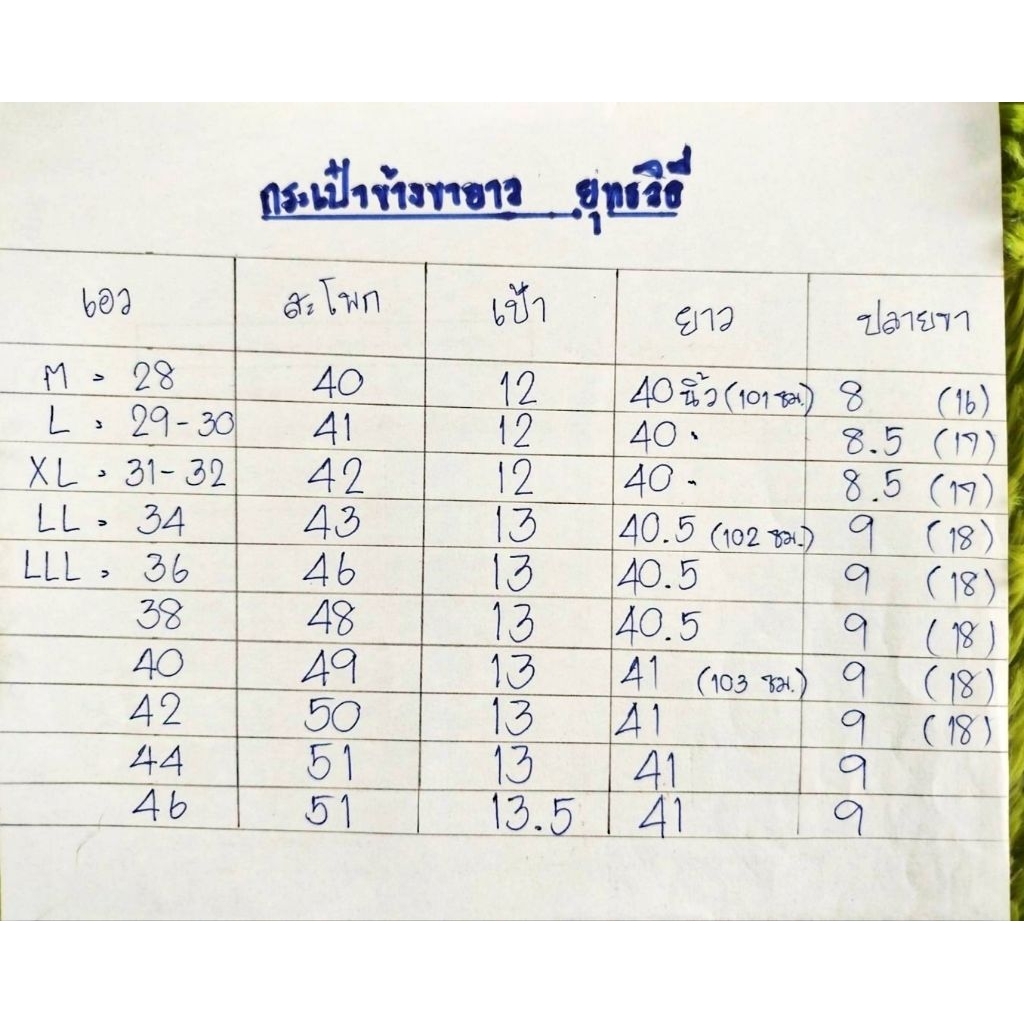 กระเป๋าข้างขายาว ยุทธวิธี
เอว สะโพก เป้า ยาว ปลายขา
M = 28 40 12 40 นิ้ว (101 ซม.) 8 (16)
L = 29-30 41 12 40 " 8.5 (17)
XL = 31-32 42 12 40 " 8.5 (17)
LL = 34 43 13 40.5 (102 ซม.) 9 (18)
LLL = 36 46 13 40.5 9 (18)
38 48 13 40.5 9 (18)
40 49 13 41 (103 ซม.) 9 (18)
42 50 13 41 9 (18)
44 51 13 41 9
46 51 13.5 41 9